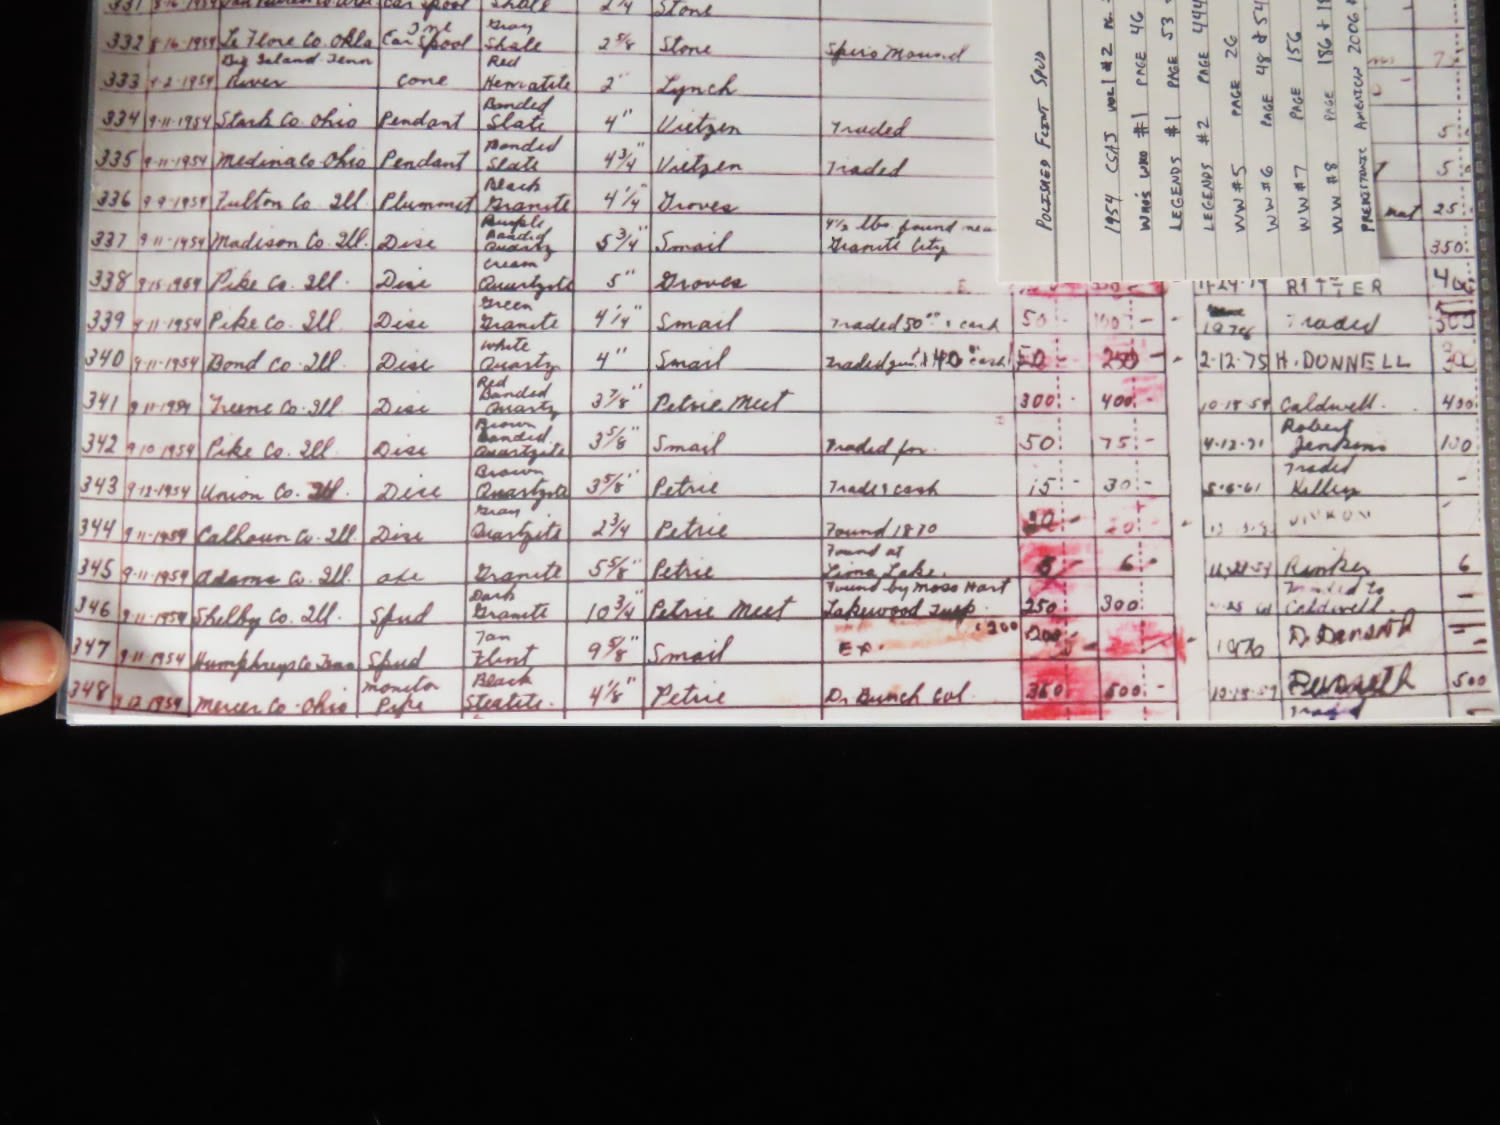 331 8-16-1954 Ear Spool Shale 2 1/4 Stone
332 8-16-1954 Le Flore Co. Okla Ear Spool Gray Shale 2 5/8" Stone Spiro Mound
333 9-2-1954 Big Island Tenn River Cone Red Hematite 2" Lynch
334 9-11-1954 Stark Co. Ohio Pendant Banded Slate 4" Vietzen Traded 5
335 9-11-1954 Medina Co Ohio Pendant Banded Slate 4 3/4" Vietzen Traded 5
336 9-9-1954 Fulton Co Ill. Plummet Black Granite 4 1/4" Groves 25
337 9-11-1954 Madison Co. Ill. Disc Purple Banded Quartz 5 3/4" Smail 4 1/2 lbs found near Granite City 350
338 Pike Co. Ill Disc Cream Quartzite 5" Groves 11-24-79 RITTER
339 9-11-1954 Pike Co. Ill Disc Green Granite 4 1/4" Smail Traded 50 & cash 50 - 100 - 1978 Traded
340 9-11-1954 Bond Co. Ill Disc White Quartz 4" Smail 250 - 2-12-75 H. DONNELL 300
341 9-11-1954 Greene Co. Ill Disc Red Banded Quartz 3 7/8" Petrie Meet 300 - 400 - 10-18-59 Caldwell. 400
342 9-10-1954 Pike Co. Ill. Disc Brown Banded Quartzite 3 5/8" Smail Traded for 50 - 75 - 4-12-71 Robert Jenkins 100
343 9-12-1954 Union Co. Ill. Disc Brown Quartzite 3 5/8" Petrie Trade & cash 15 - 30 - 5-6-61 Traded Kelley -
344 9-11-1954 Calhoun Co. Ill. Disc Gray Quartzite 2 3/4 Petrie Found 1870 20 - 20 -
345 9-11-1954 Adams Co. Ill. axe Granite 5 5/8" Petrie Found at Lima Lake. 6 - 11-21-54 Rinker 6
346 9-11-1954 Shelby Co. Ill. Spud Dark Granite 10 3/4" Petrie Meet Found by Moss Hart Lakewood Twp. 250 300 Traded to Caldwell. -
347 9-11-1954 Humphreys Co Tenn Spud Tan Flint 9 5/8" Smail Ex. 200 200 - 1976
348 9-12-1954 Mercer Co. Ohio Monitor Pipe Black Steatite. 4 1/8" Petrie Dr Bunch Col. 500 - 10-18-59 500
Traded
POLISHED FLINT SPUD
1954 CSAJ VOL 1 #2
WHO'S WHO #1 PAGE 46
LEGENDS #1 PAGE 53
LEGENDS #2 PAGE 444
WW #5 PAGE 26
WW #6 PAGE 48 & 54
WW #7 PAGE 156
WW #8 PAGE 186 &
PREHISTORIC AMERICAN 2006